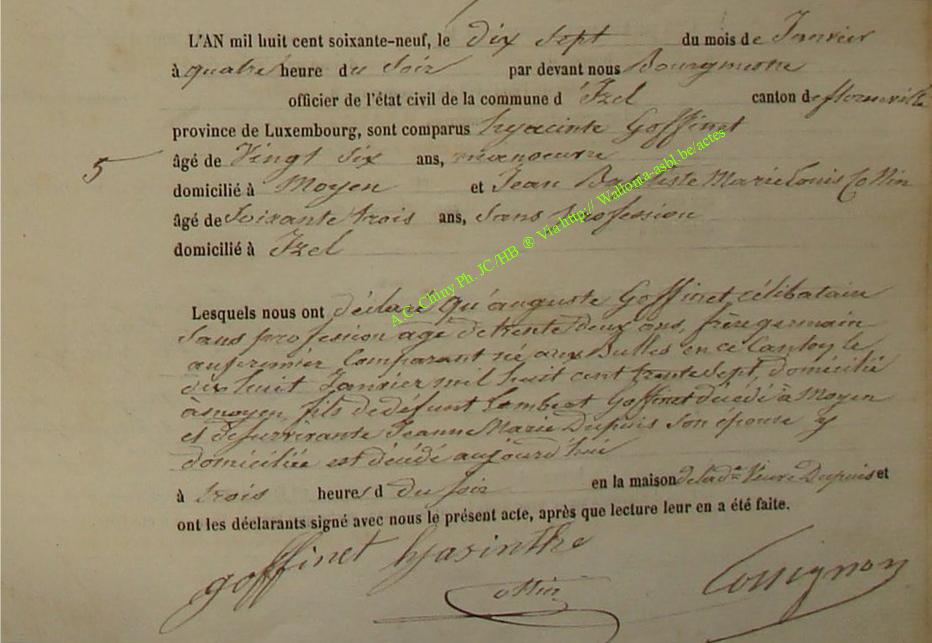 L'AN mil huit cent soixante-neuf, le dix sept du mois de Janvier
à quatre heure du soir par devant nous Bourgmestre
officier de l'état civil de la commune d'Izel canton de florenville
province de Luxembourg, sont comparus hyacinte Goffinet
5 âgé de Vingt six ans, manoeuvre
domicilié à Moyen et Jean Baptiste Marie Louis Collin
âgé de Soixante trois ans, Sans profession
domicilié à Izel
Lesquels nous ont déclaré qu'auguste Goffinet célibataire
sans profession agé de trente deux ans, frère germain
au premier Comparant né aux Bulles en ce Canton le
dix huit Janvier mil huit cent trente sept, domicilié
à moyen, fils de défunt Lambert Goffinet décédé à Moyen
et de survivante Jeanne Marie Dupuis son épouse y
domiciliée est décédé aujourd'hui
à trois heures d du soir en la maison de la de Veuve Dupuis et
ont les déclarants signé avec nous le présent acte, après que lecture leur en a été faite.
goffinet hyasinthe
Collin
Cossignon
A.C. Chiny Ph. JC /HB ® Via http:// Wallonia-asbl.be/actes